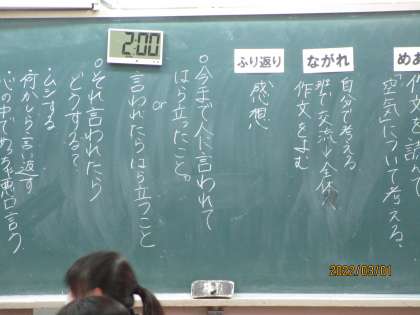 めあ
「空気」について考える。
ながれ
自分で考える
班で交流→全体
作文を読む
ふり返り
感想
○今まで人に言われて
はら立ったこと。
or
言われたらはら立つこと
2:00
○それ言われたら
どうする?
・ムシする
・何かしら言い返す
・心の中でめっちゃ悪口言う
2022/03/01